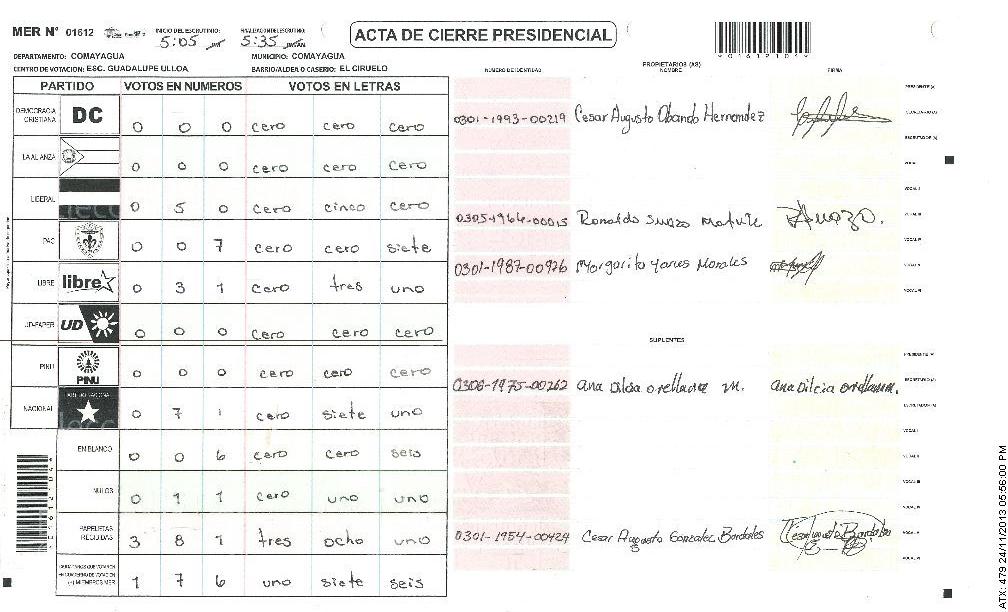 MER Nº 01612
INICIO DEL ESCRUTINIO: 5:05
FINALIZACION DEL ESCRUTINIO: 5:35
ACTA DE CIERRE PRESIDENCIAL
DEPARTAMENTO: COMAYAGUA MUNICIPIO: COMAYAGUA
CENTRO DE VOTACION: ESC. GUADALUPE ULLOA BARRIO/ALDEA O CASERIO: EL CIRUELO
PARTIDO VOTOS EN NUMEROS VOTOS EN LETRAS
DEMOCRACIA CRISTIANA DC 0 0 0 cero cero cero
LA ALIANZA 0 0 0 cero cero cero
LIBERAL 0 5 0 cero cinco cero
PAC 0 0 7 cero cero siete
LIBRE libre 0 3 1 cero tres uno
UD-FAPER UD 0 0 0 cero cero cero
PINU PINU 0 0 0 cero cero cero
NACIONAL 0 7 1 cero siete uno
EN BLANCO 0 0 6 cero cero seis
NULOS 0 1 1 cero uno uno
PAPELETAS RECIBIDAS 3 8 1 tres ocho uno
1 7 6 uno siete seis
NUMERO DE IDENTIDAD PROPIETARIOS (AS) NOMBRE FIRMA
0301-1993-00219 Cesar Augusto Obando Hernandez
Ronaldo Suazo
0301-1987-00926 Morales
SUPLENTES
0306-1975-00262 ana Dilcia orellana M. ana Dilcia orellana.
0301-1954-00424 Cesar Augusto Gonzalez Bordales
ATX: 479 24/11/2013 05:56:00 PM